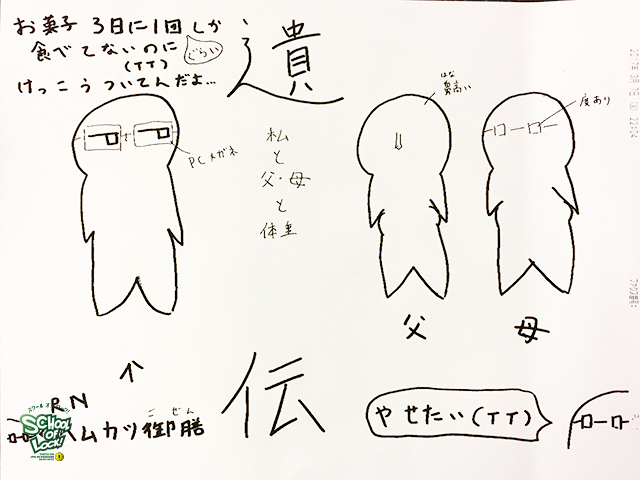 お菓子 3日に1回しか
ぐらい
食べてないのに
(TT)
けっこうついてんだよ...
遺
はな
鼻高い
度あり
PCメガネ
私
と
父・母
と
体重
父
母
伝
↑
RN
ごぜん
ハムカツ御膳
やせたい(TT)
スクール オブ ロック!
SCHOOL
OF
LOCK!